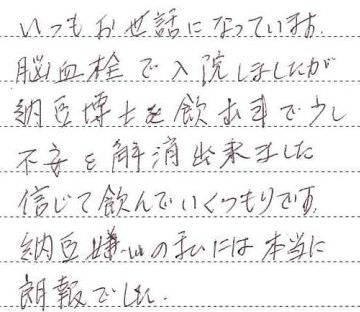 いつもお世話になっています。
脳血栓で入院しましたが
納豆博士を飲む事で少し
不安を解消出来ました
信じて飲んでいくつもりです。
納豆嫌いの私には本当に
朗報でした.